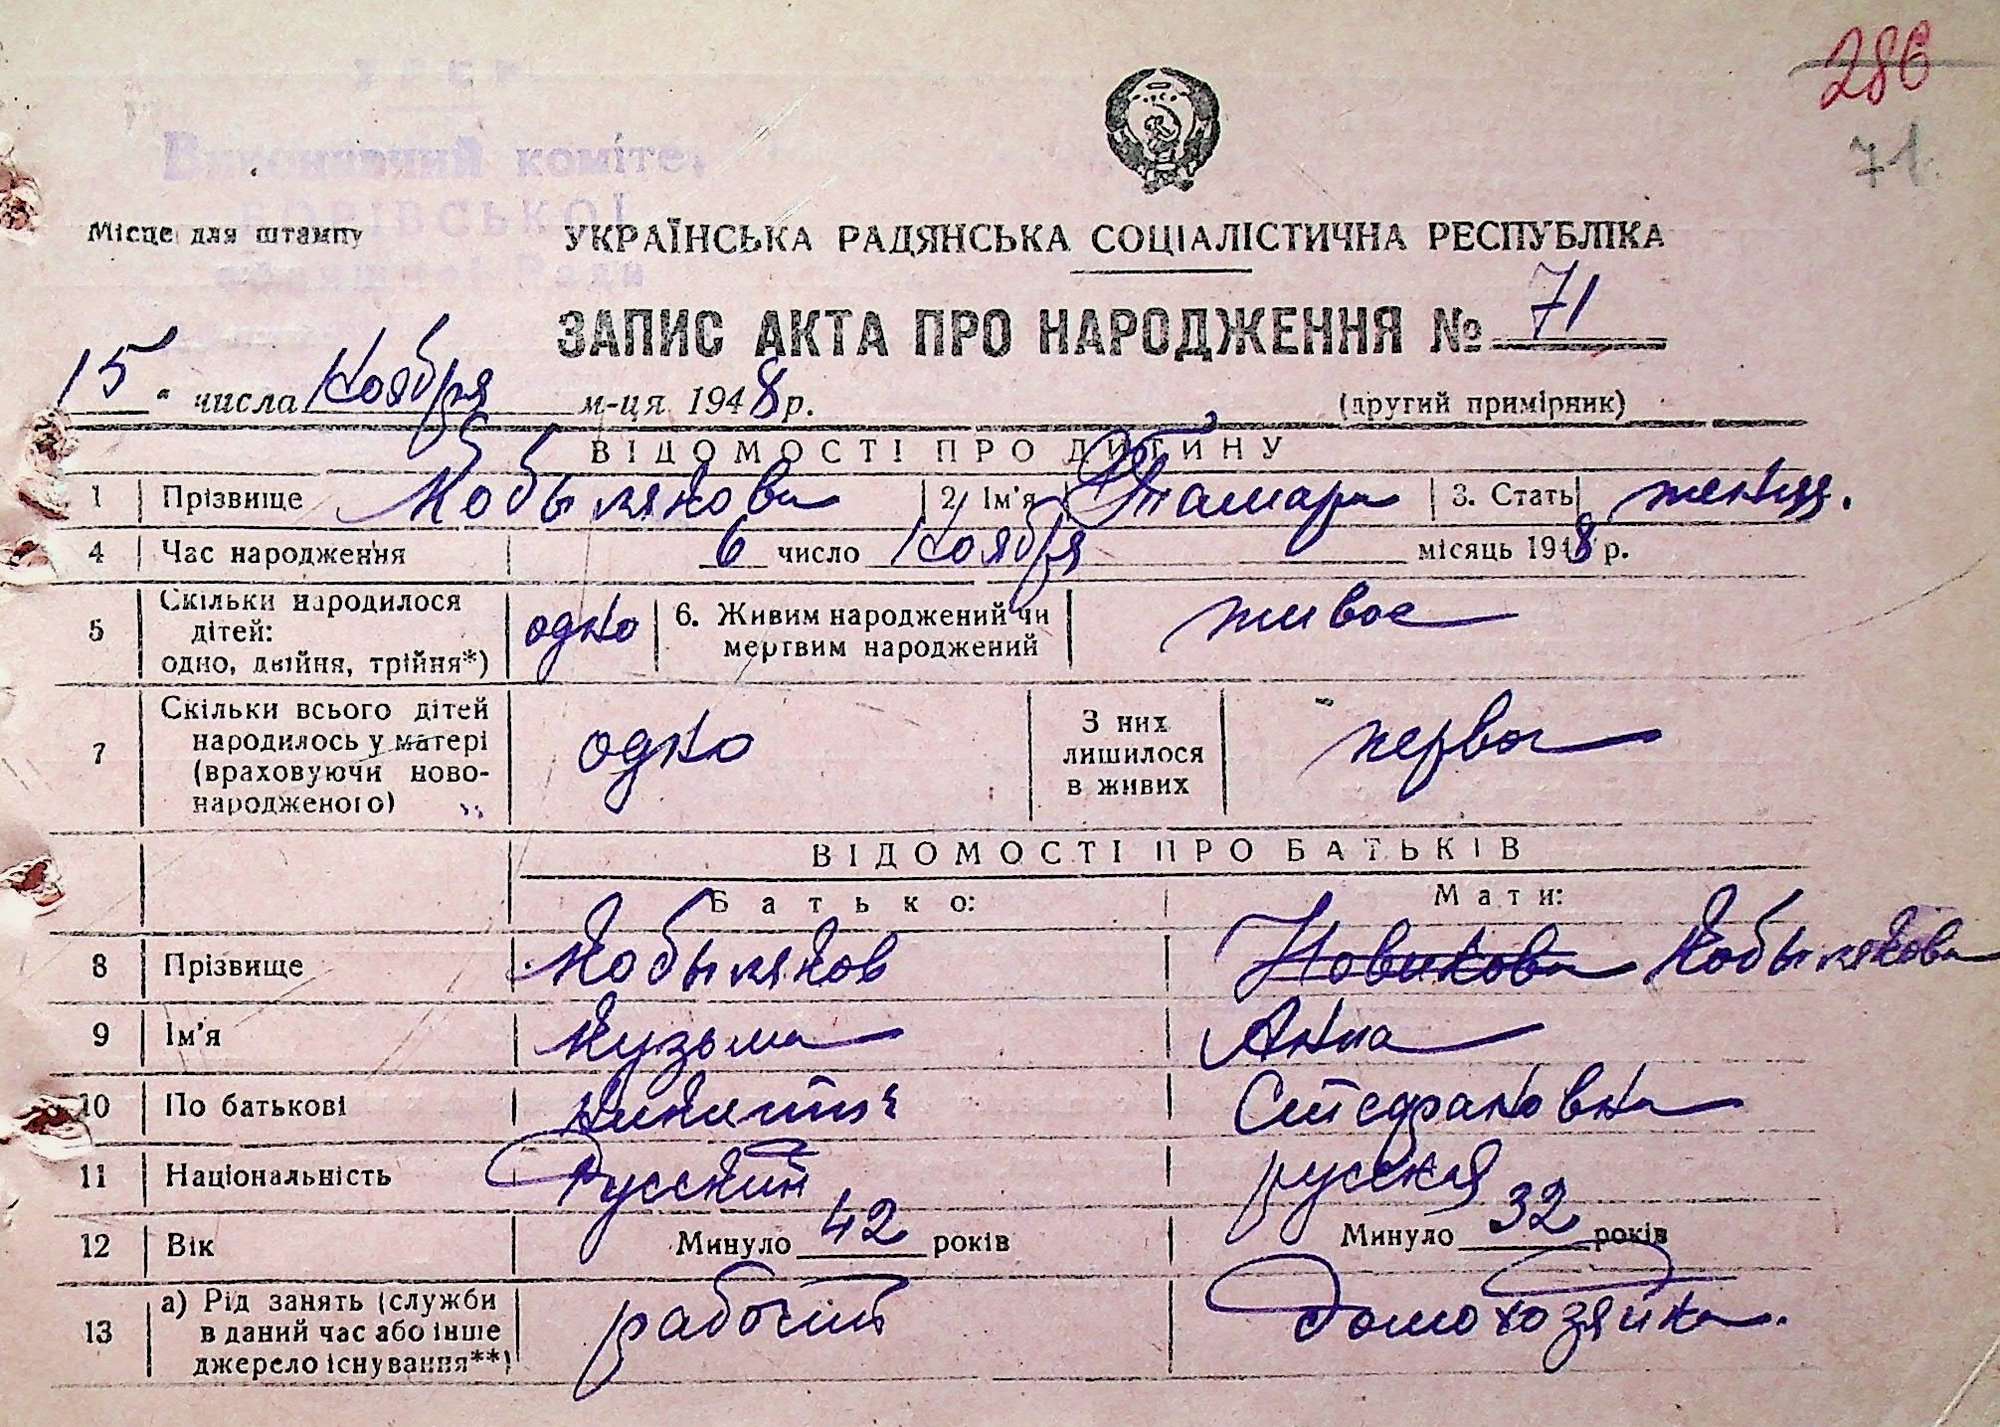 286
71.
Виконавчий коміте
Місце для штампу
УКРАЇНСЬКА РАДЯНСЬКА СОЦІАЛІСТИЧНА РЕСПУБЛІКА
ЗАПИС АКТА ПРО НАРОДЖЕННЯ № 71
15 числа Ноября м-ця 1948 р. (другий примірник)
ВІДОМОСТІ ПРО ДИТИНУ
1 Прізвище Кобылякова 2 Ім'я Тамара 3. Стать женщ.
4 Час народження 6 число Ноября місяць 1948 р.
5 Скільки народилося дітей: одно, двійня, трійня*) одно 6. Живим народжений чи мертвим народжений живое
7 Скільки всього дітей народилось у матері (враховуючи новонародженого) одно З них лишилося в живих первое
ВІДОМОСТІ ПРО БАТЬКІВ
Батько: Мати:
8 Прізвище Кобыляков Новикова Кобылякова
9 Ім'я Кузьма Анна
10 По батькові Никитич Стефановна
11 Національність Русский русская
12 Вік Минуло 42 років Минуло 32 років
13 а) Рід занять (служби в даний час або інше джерело існування**) рабочий домохозяйка.